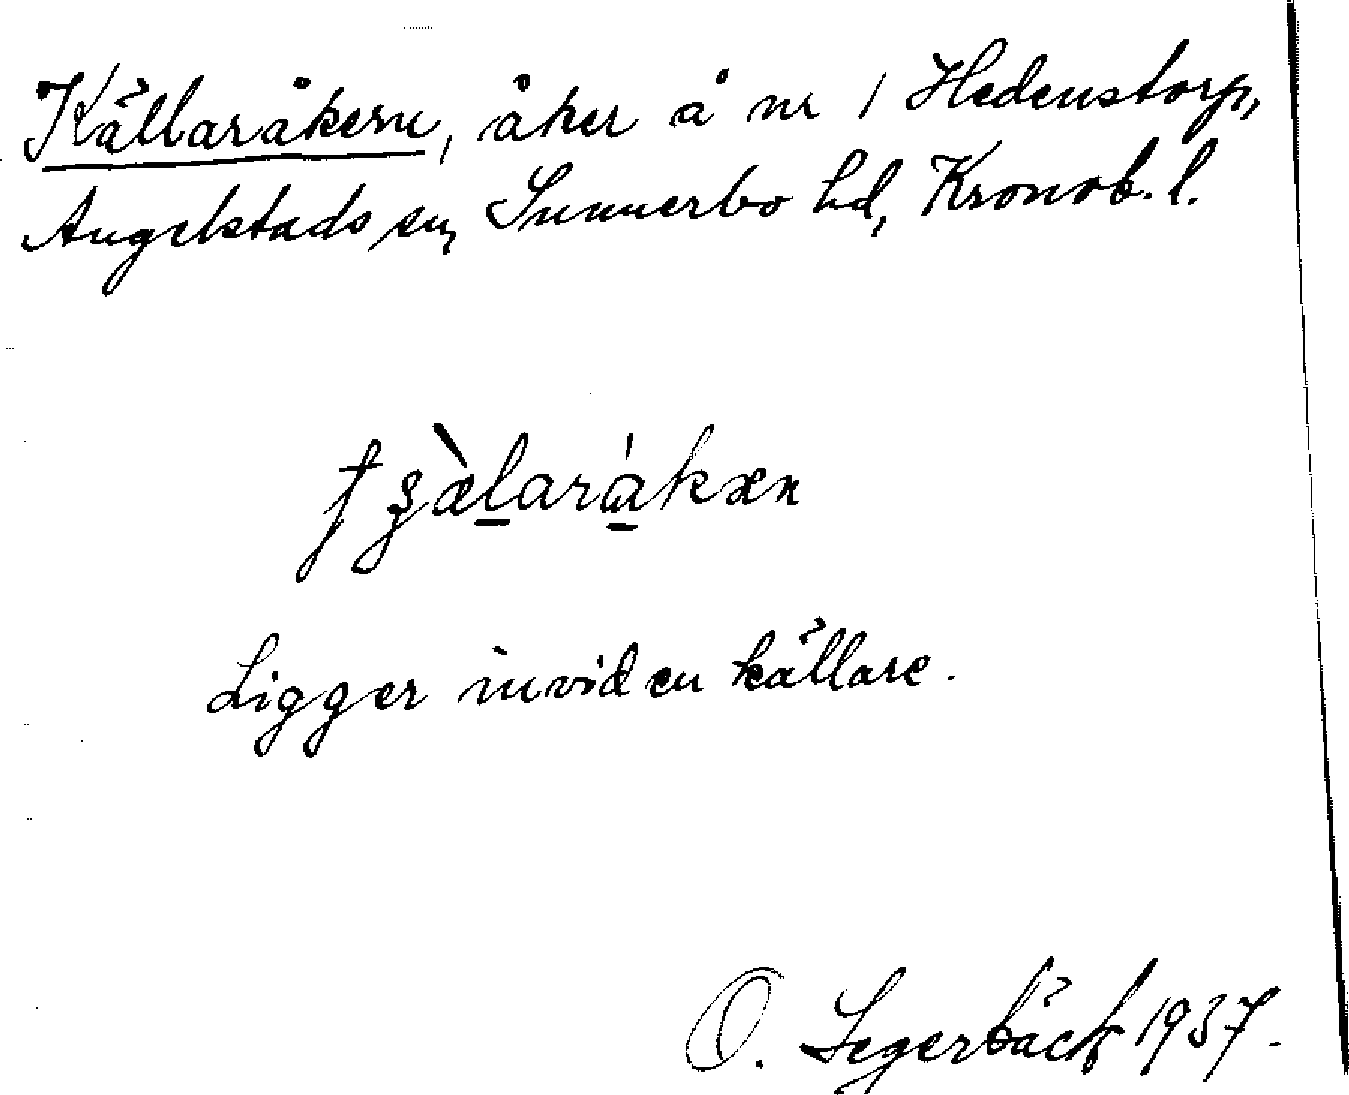 Källaråkern, åker å nr 1 Hedenstorp,
Angelstads sn, Sunnerbo hd, Kronob. l.
Ligger invid en källare.
O. Segerbäck 1937.